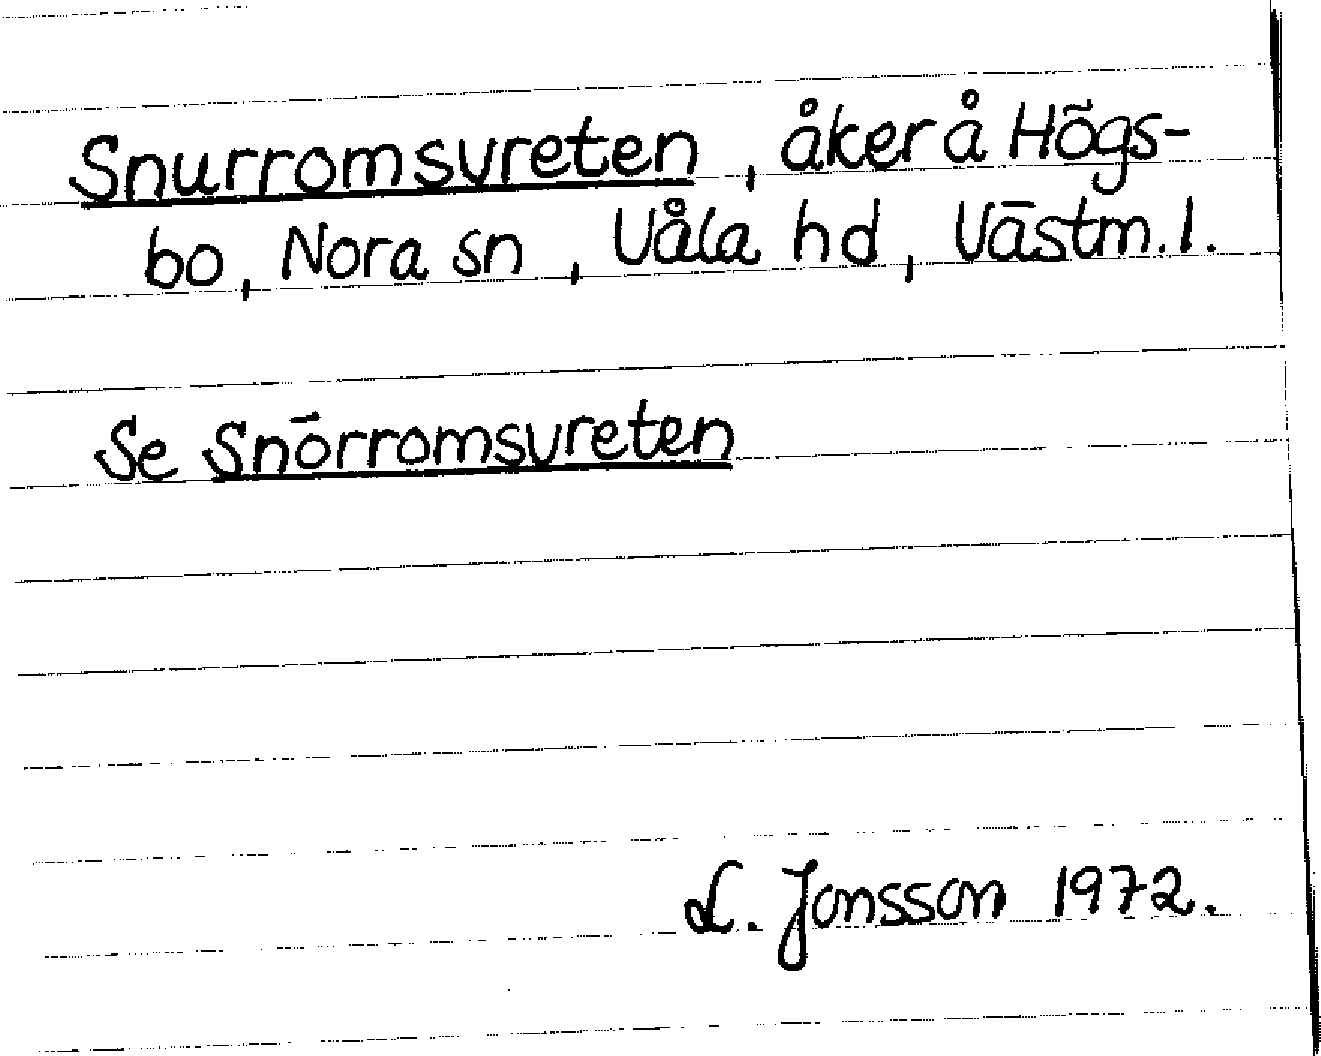 Snurromsvreten, åker å Högs-
bo, Nora sn, Våla hd, Västm. l.
Se Snörromsvreten
L. Jonsson 1972.